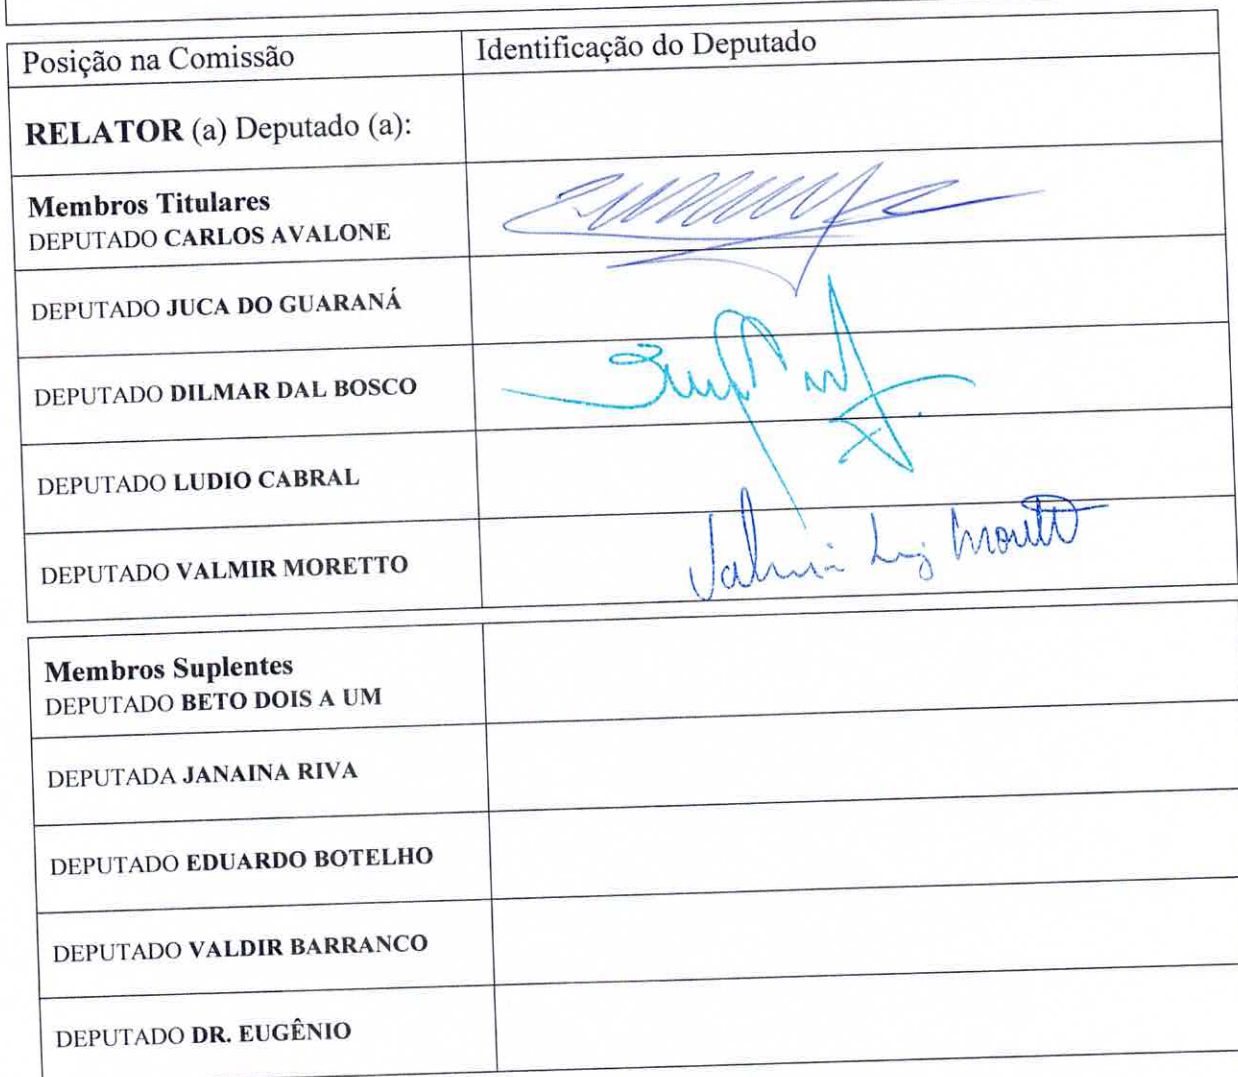 Posição na Comissão
Identificação do Deputado
RELATOR (a) Deputado (a):
Membros Titulares
DEPUTADO CARLOS AVALONE
DEPUTADO JUCA DO GUARANÁ
DEPUTADO DILMAR DAL BOSCO
DEPUTADO LUDIO CABRAL
DEPUTADO VALMIR MORETTO
Valmir Luiz Moretto
Membros Suplentes
DEPUTADO BETO DOIS A UM
DEPUTADA JANAINA RIVA
DEPUTADO EDUARDO BOTELHO
DEPUTADO VALDIR BARRANCO
DEPUTADO DR. EUGÊNIO